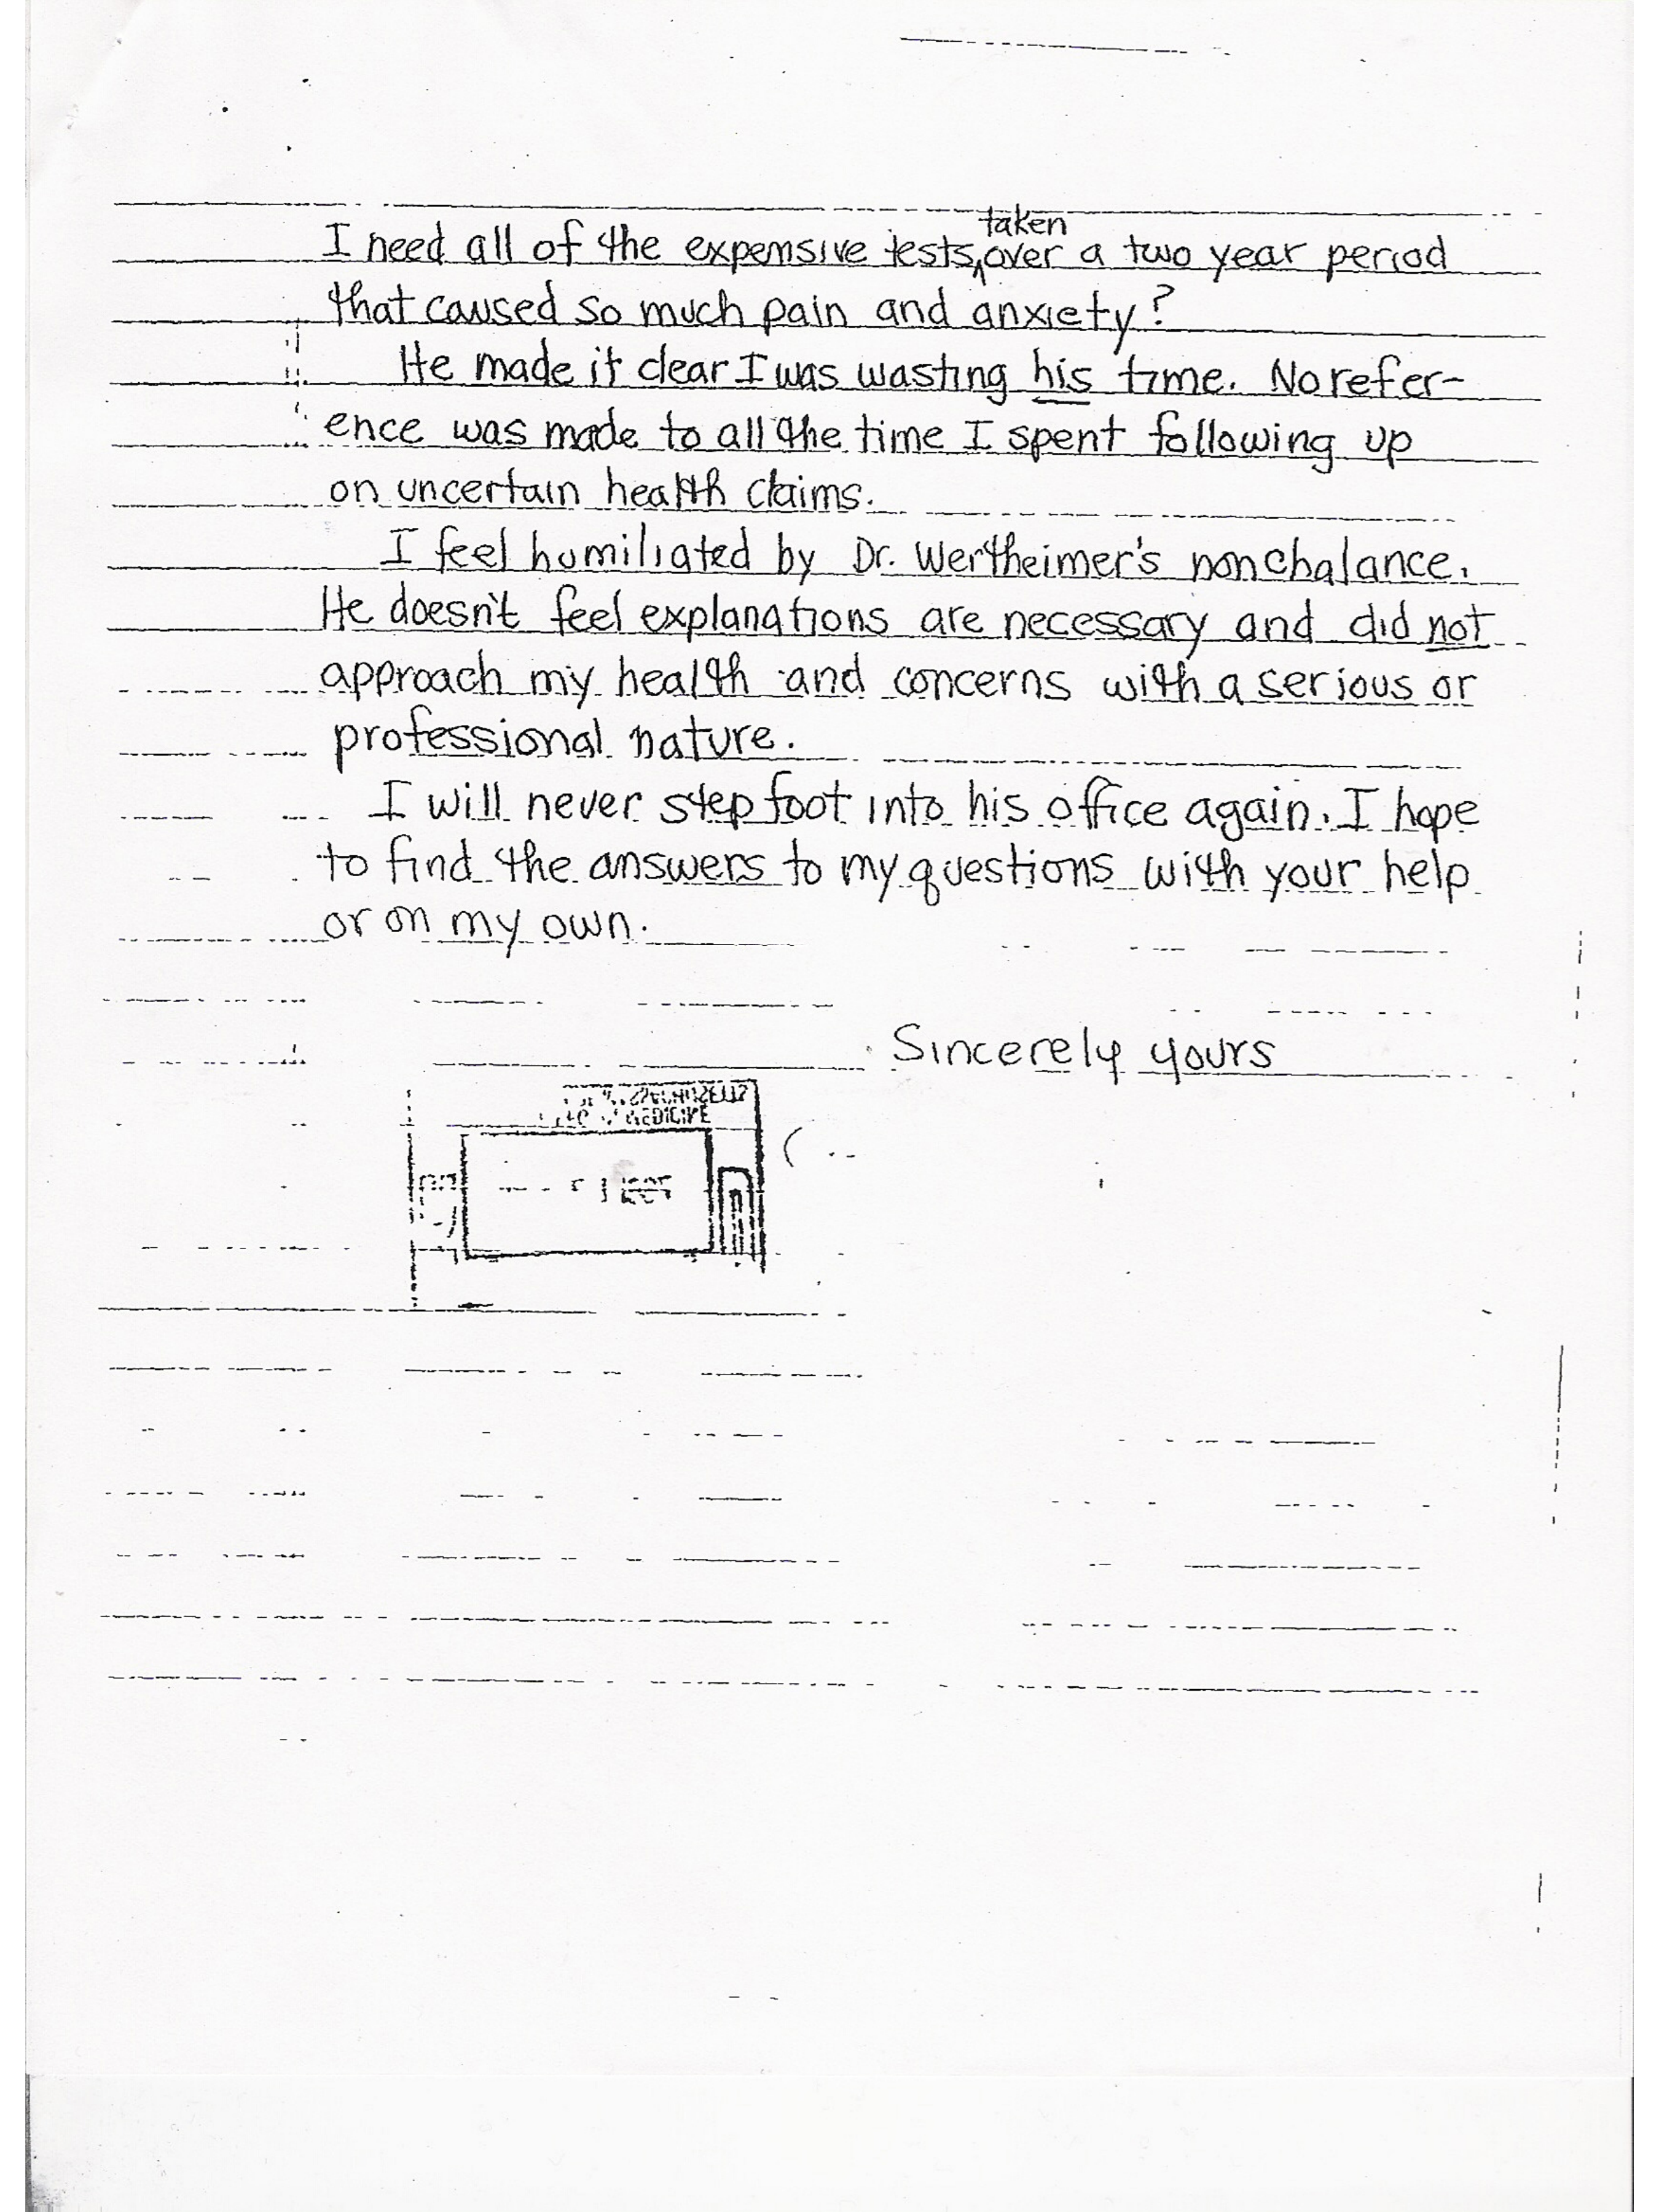 I need all of the expensive tests, taken over a two year period
that caused so much pain and anxiety?
He made it clear I was wasting his time. No refer-
ence was made to all the time I spent following up
on uncertain health claims.
I feel humiliated by Dr. Wertheimer's nonchalance.
He doesn't feel explanations are necessary and did not
approach my health and concerns with a serious or
professional nature.
I will never step foot into his office again. I hope
to find the answers to my questions with your help
or on my own.
Sincerely yours
MEDICINE